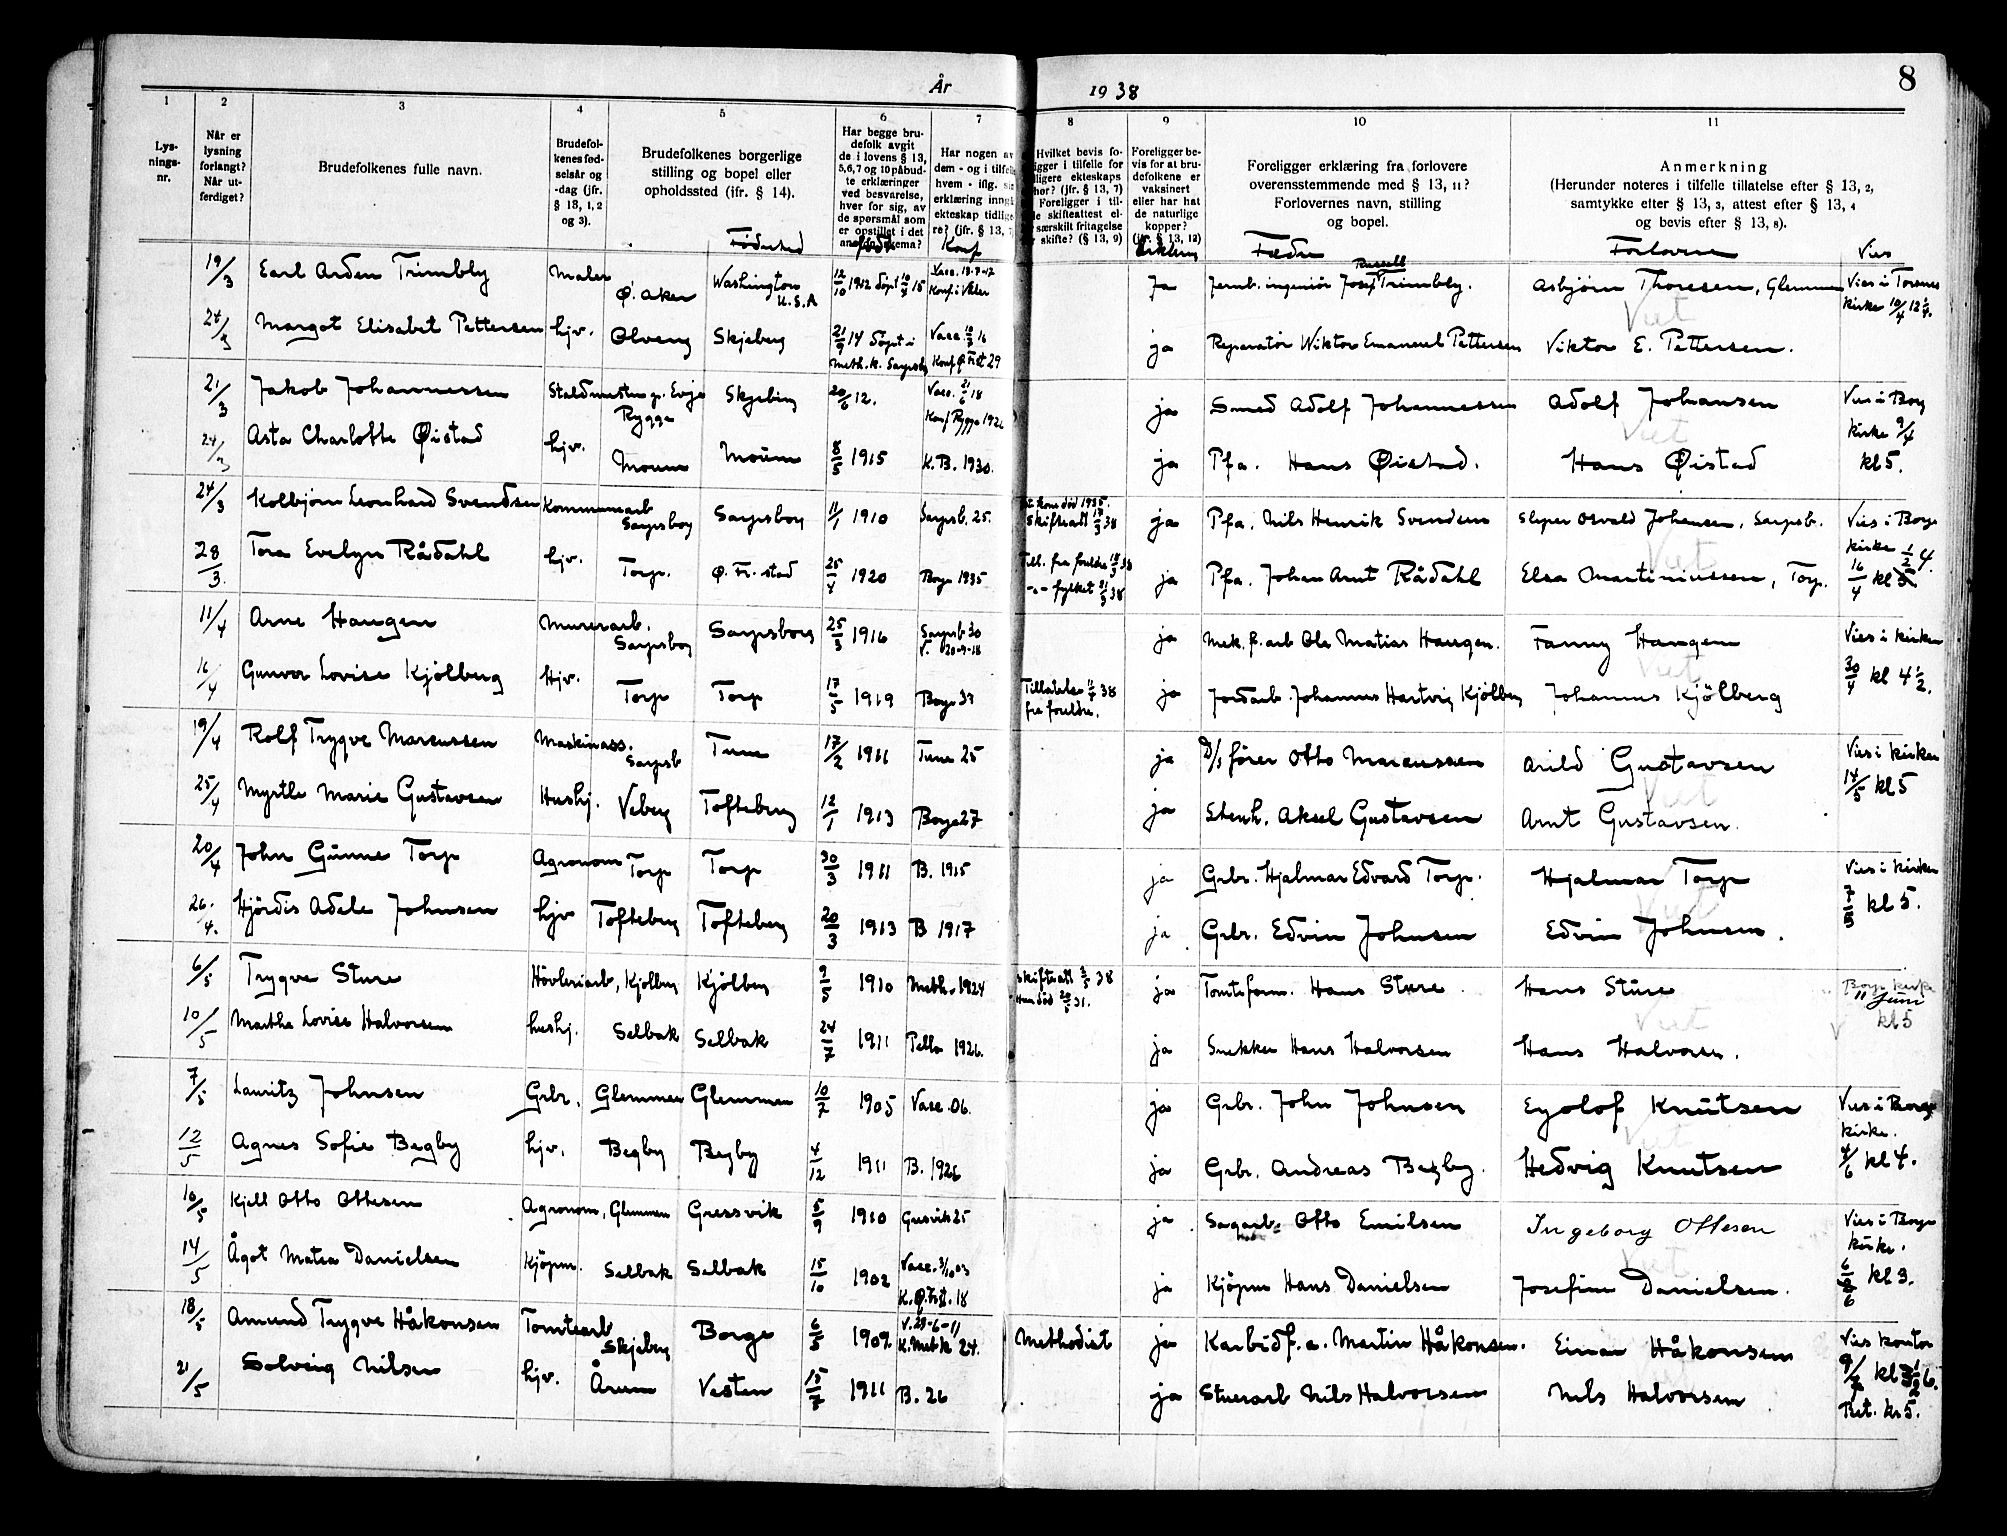 År 1938
8
1 2 3 4 5 6 7 8 9 10 11
Lysningsnr.
Når er lysning forlangt? Når utferdiget?
Brudefolkenes fulle navn.
Brudefolkenes fødselsår og -dag (jfr. § 13, 1, 2 og 3).
Brudefolkenes borgerlige stilling og bopel eller opholdssted (jfr. § 14).
Har begge brudefolk avgit de i lovens § 13, 5, 6, 7 og 10 påbudte erklæringer ved besvarelse, hver for sig, av de spørsmål som er opstillet i det
Har nogen av dem - og i tilfelle hvem - iflg. erklæring inngått ekteskap tidligere? (jfr. § 13,
Hvilket bevis foreligger i tilfelle for tidligere ekteskaps ophør? (jfr. § 13, 7) Foreligger i tilfelle skifteattest eller særskilt fritagelse for skifte? (§ 13, 9)
Foreligger bevis for at brudefolkene er vaksinert eller har hat de naturlige kopper? (jfr. § 13, 12)
Foreligger erklæring fra forlovere overensstemmende med § 13, 11? Forlovernes navn, stilling og bopel.
Anmerkning (Herunder noteres i tilfelle tillatelse efter § 13, 2, samtykke efter § 13, 3, attest efter § 13, 4 og bevis efter § 13, 8).
Fødested født Konf Fædre Forlovere Vies
19/3 Earl Arden Trimbly Maler Ø. Aker Washington U.S.A 12/10 1912 Døpt 10/4 15 Vacc. 18-9-17 Ja Jernb. ingeniør Josef Russell Trimbly. Asbjørn Thoresen, Glemmen Vies i Torsnes kirke 10/4 12 1/4.
24/3 Margot Elisabet Pettersen hjv. Ølveng Skjeberg 21/9 14 Døpt i Meth. k. Sarpsb Vacc. 10/7 16 Konf Ø Frst 29 ja Reparatør Wiktor Emanuel Pettersen Viktor E. Pettersen.
21/3 Jakob Johannessen Staldmester p. Evje Rygge Skjeberg 20/6 12. Vacc. 21/6 18 Konf Rygge 1926 ja Smed Adolf Johannessen Adolf Johansen Vies i Borg kirke 9/4 kl 5.
24/3 Asta Charlotte Øistad hjv. Moum Moum 8/5 1915 K.B. 1930. ja Pfa. Hans Øistad. Hans Øistad
24/3 Kolbjørn Leonhard Svendsen Kommunearb Sarpsborg Sarpsborg 11/1 1910 Sarpsb. 25. kone død 1935. Skifteatt 19/3 38 ja Pfa. Nils Henrik Svendsen Sliper Osvald Johansen, Sarpsb. Vies i Borge kirke 1/2 4. 16/4 kl 5
28/3. Tora Evelyn Rådahl hjv. Torp. Ø. Fr.stad 25/4 1920 Borge 1935 Till. fra foreldre 18/3 38 -"- fylket 31/3 38 ja Pfa. Johan Arnt Rådahl Elsa Martiniussen, Torp.
11/4 Arne Haugen Murerarb. Sarpsborg Sarpsborg 25/3 1916 Sarpsb 30 V. 20-9-18 ja Mek. f. arb Ole Matias Haugen. Fanny Haugen Vies i kirken 30/4 kl 4 1/2.
16/4 Gunvor Lovise Kjølberg Hjv. Torp Torp 17/5 1919 Borge 33 Tilladelse 11/4 38 fra foreldre. ja Jordarb. Johannes Hartvig Kjølberg Johannes Kjølberg
19/4 Rolf Trygve Marcussen Maskinass. Sarpsb Tune 17/2 1911 Tune 25 ja D/s fører Otto Marcussen Arild Gustavsen Vies i kirken 14/5 kl 5
25/4 Myrtle Marie Gustavsen Hushj. Veberg Tofteberg 12/1 1913 Borge 27 ja Stenh. Aksel Gustavsen Arnt Gustavsen.
20/4 John Gunne Torp Agronom Torp Torp 30/3 1911 B. 1915 ja Grbr. Hjalmar Edvard Torp. Hjalmar Torp Vies i kirken 7/5 kl 5.
26./4. Hjördis Adele Johnsen hjv Tofteberg Tofteberg 20/3 1913 B 1917 ja Grbr. Edvin Johnsen Edvin Johnsen.
6/5 Trygve Sture Hövleriarb, Kjølberg Kjølberg 9/5 1910 Meth. 1924 skifteatt 3/5 38 Hun død 20/5 31. ja Tomteform. Hans Sture Hans Sture Borge kirke 11 Juni kl 5
10/5 Marthe Lovise Halvorsen hushj. Selbak Selbak 24/7 1911 Pella 1926. ja Snekker Hans Halvorsen Hans Halvorsen.
7/5 Lauritz Johnsen Grbr. Glemmen Glemmen 10/7 1905 Vacc. 06. ja Grbr. John Johnsen Eyolof Knutsen Vies i Borge kirke. 4/6 kl 4.
12/5 Agnes Sofie Begby hjv. Begby Begby 4/12 1911 B. 1926 ja Grbr. Andreas Begby. Hedvig Knutsen
10/5 Kjell Otto Ottesen Agronom, Glemmen Gressvik 5/9 1910 Gresvik 25 ja Sagarb. Otto Emilsen Ingeborg Ottesen Vies i Borge kirke. 6/6 kl 3.
14/5 Ågot Matea Danielsen Kjøpm. Selbak Selbak 15/10 1902 Vacc. 3/10 03 K. Ø. Frst. 18 ja Kjøpm Hans Danielsen Josefine Danielsen.
18/5 Amund Trygve Håkonsen Tomtearb Skjeberg Borge 6/5 1909 V. 29-6-11 K. Meth 24. Methodist ja Karbidf. a. Martin Håkonsen. Einar Håkonsen Vies kontor 9/7 kl 1/2 6. Bet. kr 5.
21/5 Solveig Nilsen hjv. Årum Vesten 15/7 1911 B. 26 ja Stuerarb Nils Halvorsen Nils Halvorsen